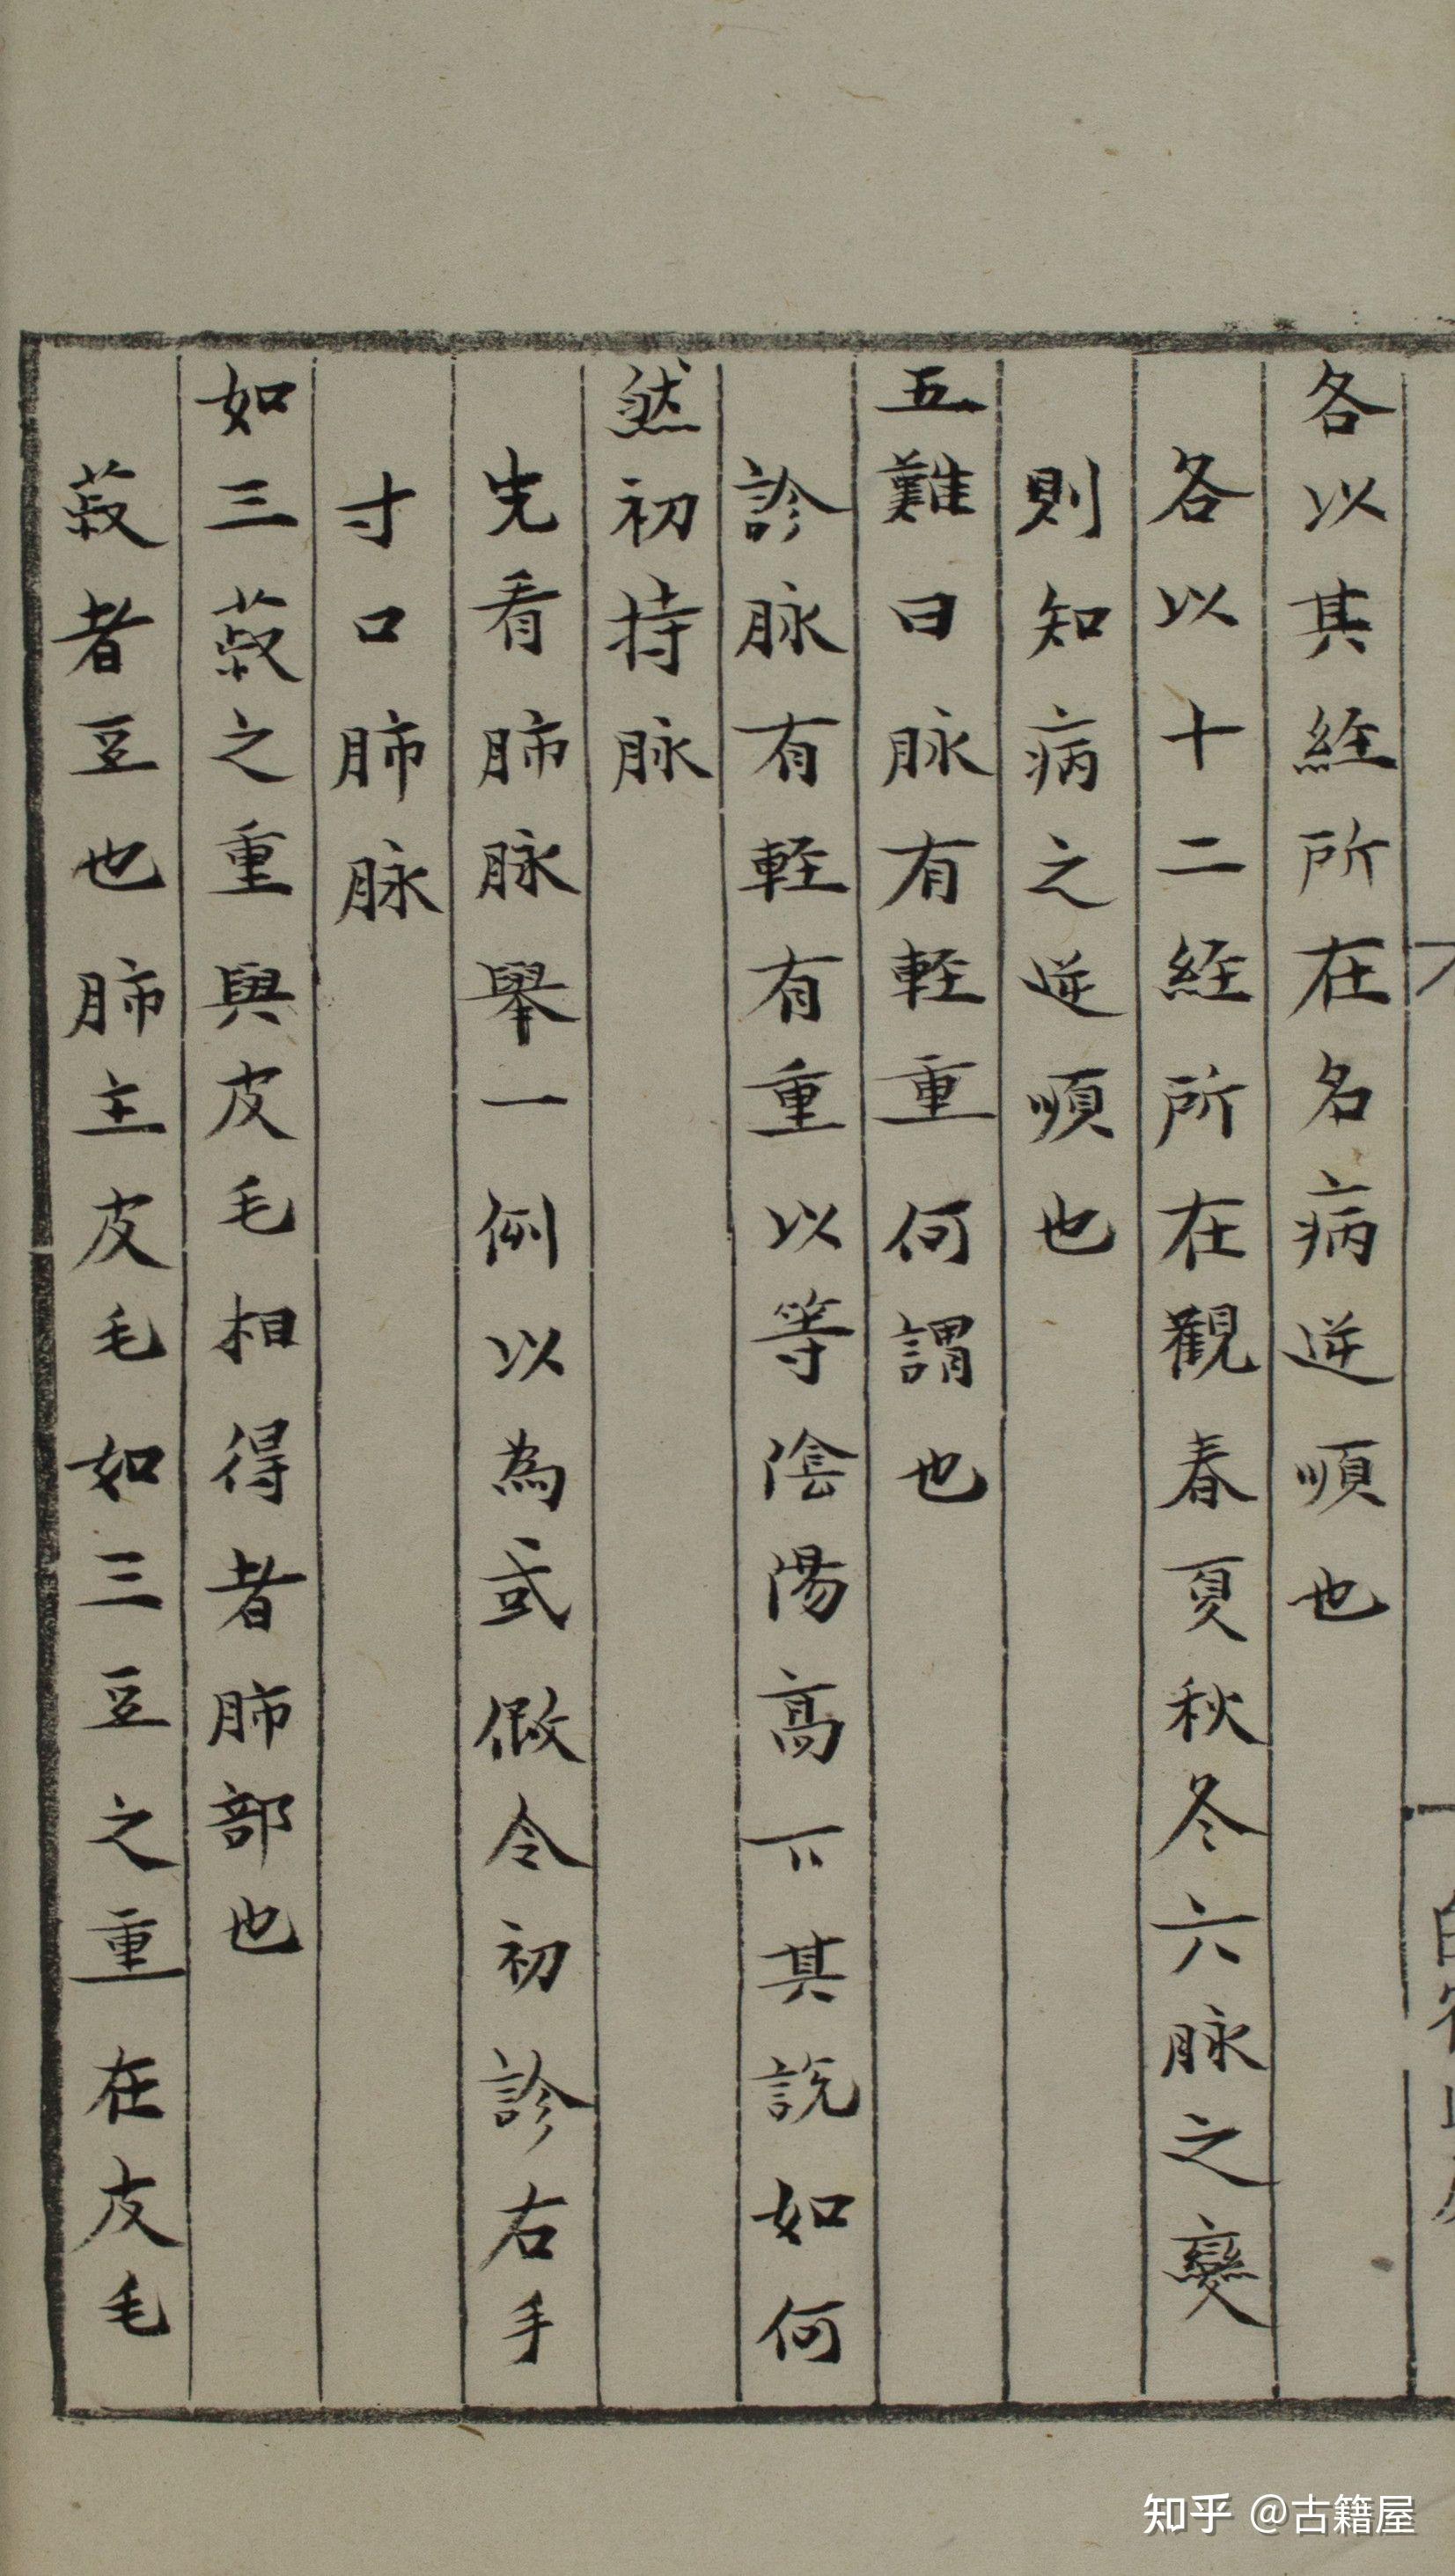 各以其經所在名病逆順也
各以十二經所在觀春夏秋冬六脉之變
則知病之逆順也
五難曰脉有輕重何謂也
診脉有輕有重以等陰陽高下其説如何
然初持脉
先看肺脉舉一例以為式假令初診右手
寸口肺脉
如三菽之重與皮毛相得者肺部也
菽者豆也肺主皮毛如三豆之重在皮毛
知乎 @古籍屋